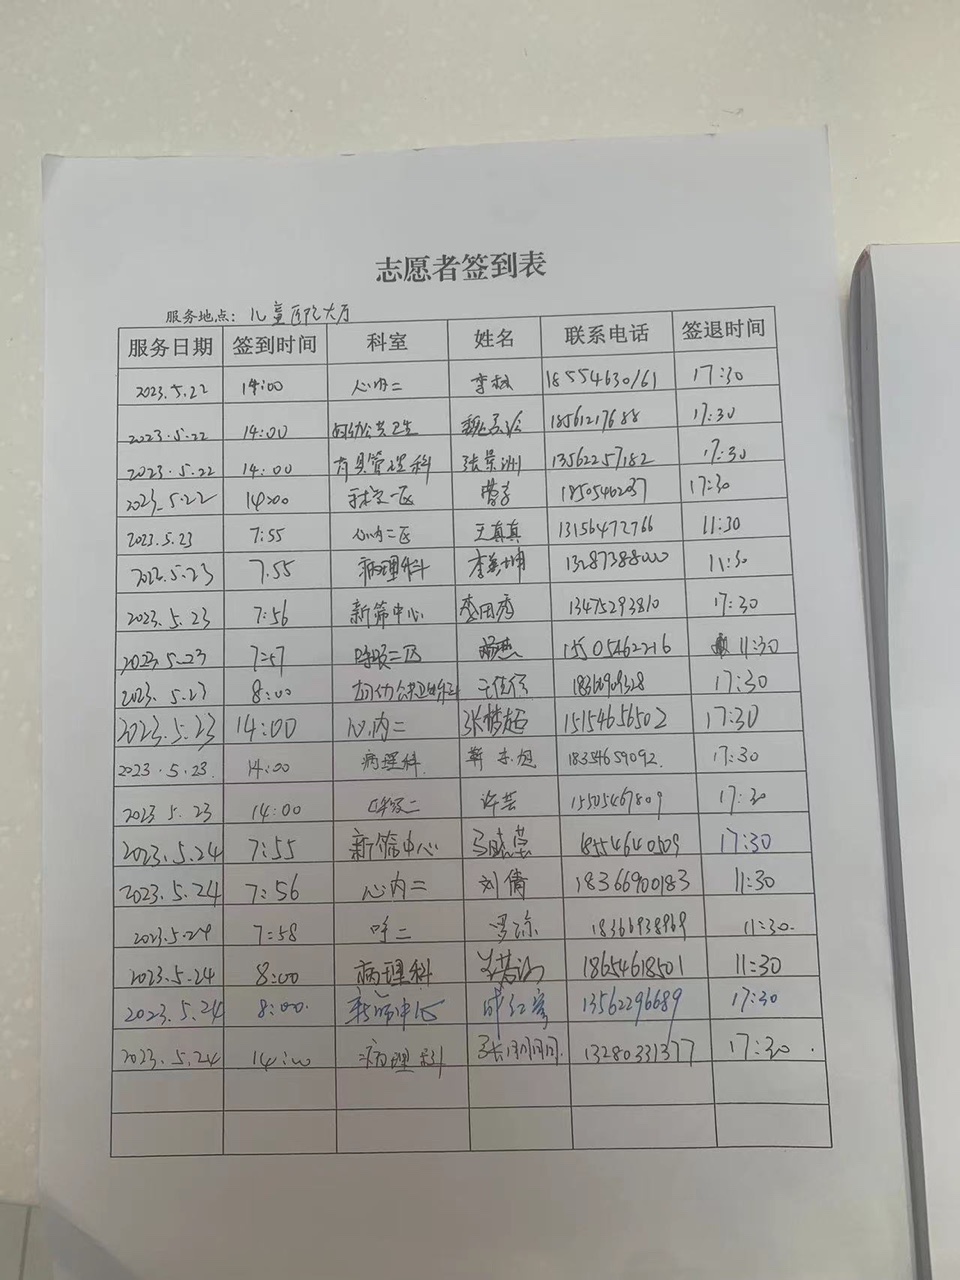 志愿者签到表
服务地点：儿童医院大厅
服务日期 签到时间 科室 姓名 联系电话 签退时间
2023.5.22 14:00 心内二 18554630161 17:30
2023.5.22 14:00 18561217688 17:30
2023.5.22 14:00 管理科 张景洲 13562257182 17:30
2023.5.22 14:00 17:30
2023.5.23 7:55 心内二区 王真真 13156472766 11:30
2023.5.23 7.55 病理科 13287388000 11:30
2023.5.23 7:56 新筛中心 李田秀 13475293810 17:30
2023.5.23 7:57 呼吸二区 15505462216 11:30
2023.5.23 8:00 17:30
2023.5.23 14:00 心内二 张梦超 15154656502 17:30
2023.5.23. 14:00 病理科. 18354659092. 17:30
2023 5.23 14:00 呼吸二 许芸 15505467809 17:30
2023.5.24 7:55 新筛中心 马晓莹 18554640509 17:30
2023.5.24 7:56 心内二 刘倩 18366900183 11:30
2023.5.24 7:58 呼二 18366938969 11:30.
2023.5.24 8:00 病理科 18654618501 11:30
2023.5.24 8:00. 新筛中心 13562296689 17:30
2023.5.24 14:00 病理科 张明明. 13280331377 17:30.